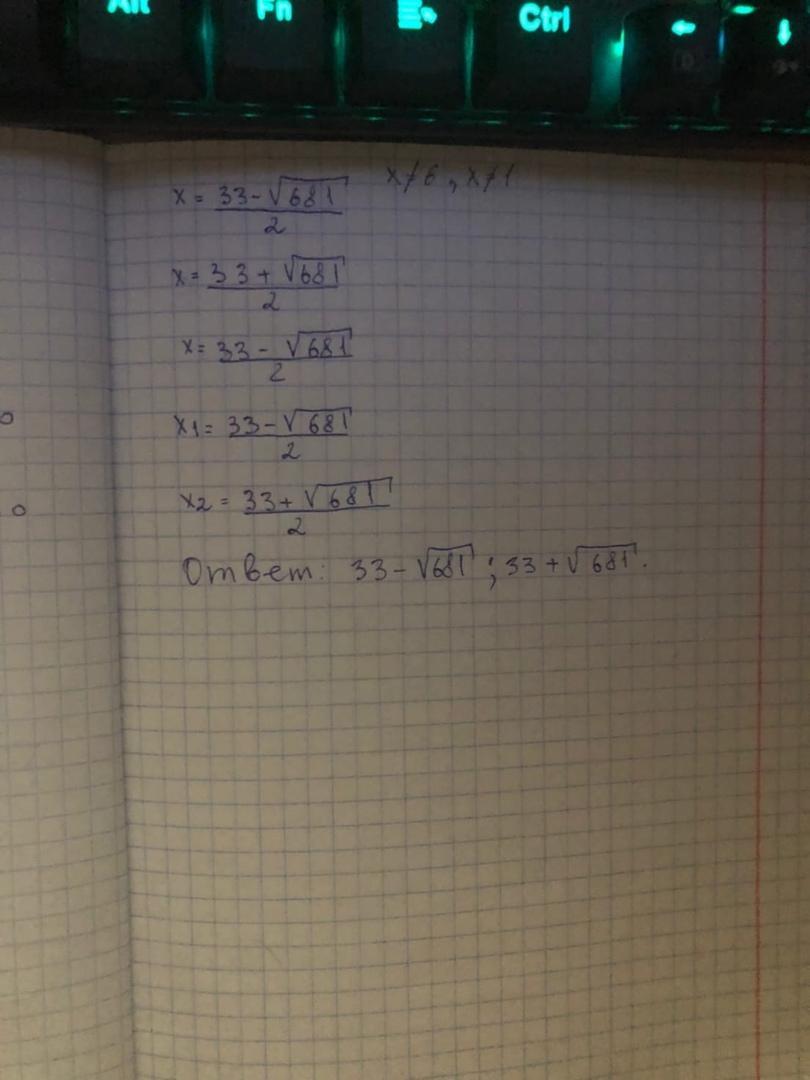 Alt Fn Ctrl
x = (33-√681)/2 x≠6, x≠1
x = (33+√681)/2
x = (33-√681)/2
x1 = (33-√681)/2
x2 = (33+√681)/2
Ответ: 33-√681; 33+√681.